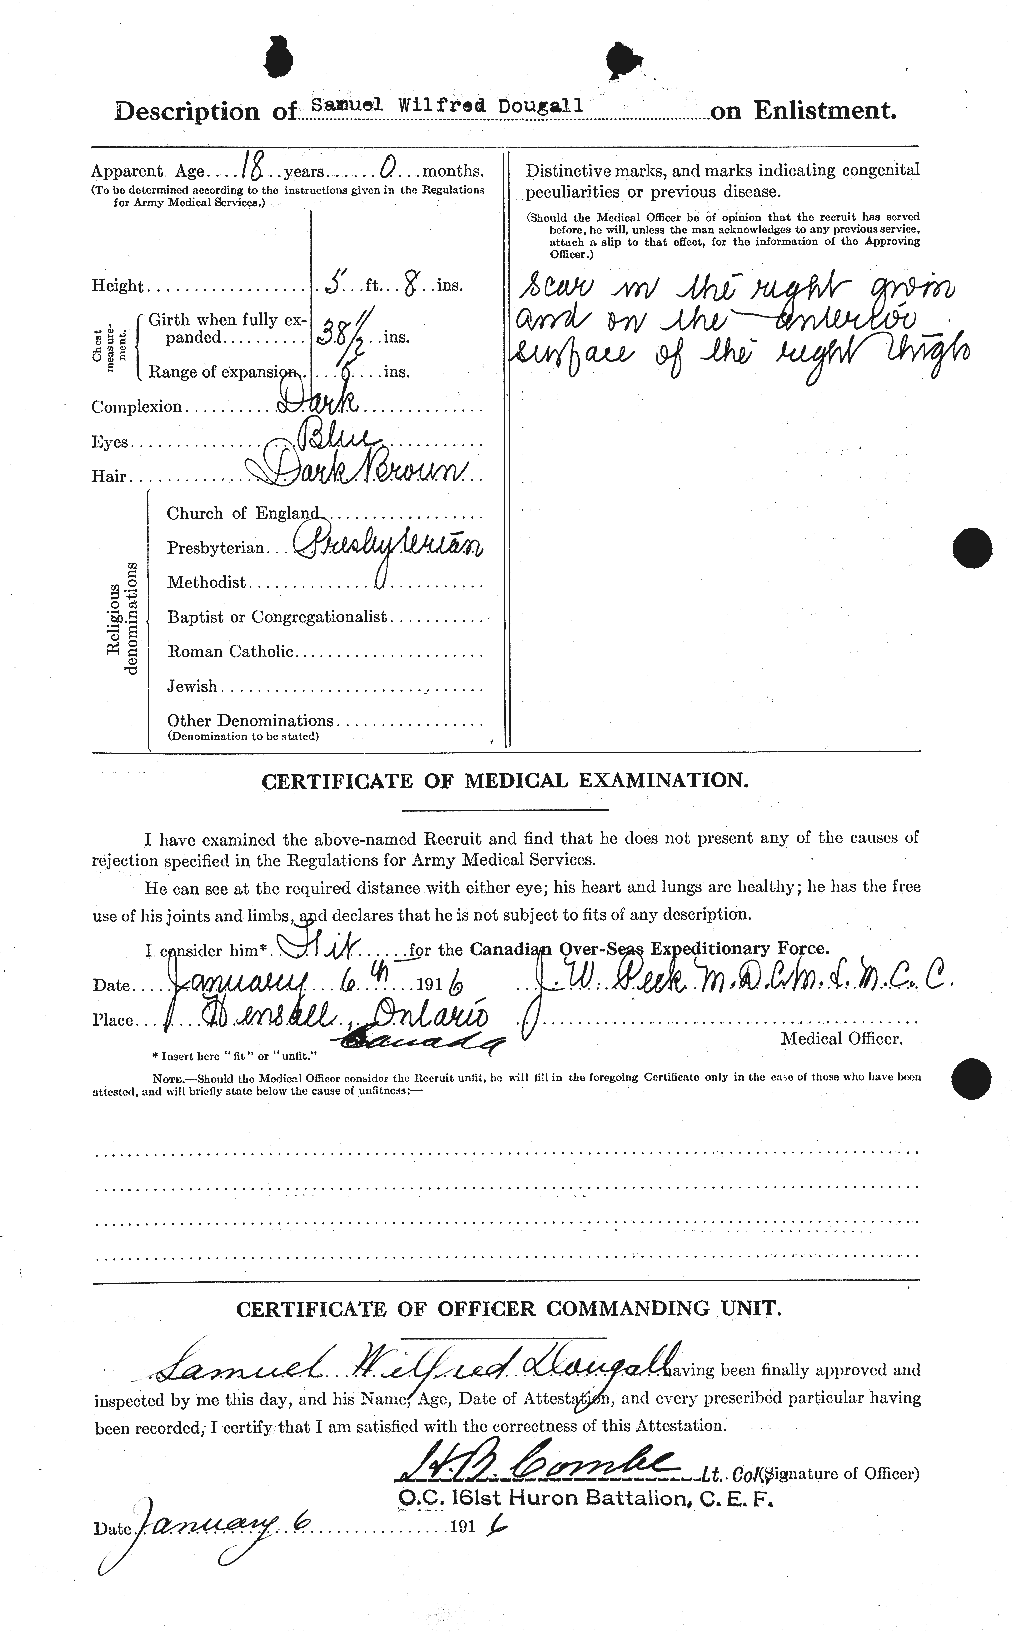 Description of Samuel Wilfred Dougall on Enlistment.
Apparent Age....18..years......0...months.
(To be determined according to the instructions given in the Regulations
for Army Medical Services.)
Height..................5...ft...8...ins.
Chest measure-ment.
Girth when fully ex-
panded..........38 1/2...ins.
Range of expansion.....6....ins.
Complexion..........Dark..............
Eyes................Blue...........
Hair..............Dark Brown...
Religious denominations
Church of England..................
Presbyterian...Presbyterian
Methodist.........................
Baptist or Congregationalist...........
Roman Catholic......................
Jewish..........................
Other Denominations.................
(Denomination to be stated)
Distinctive marks, and marks indicating congenital
peculiarities or previous disease.
(Should the Medical Officer be of opinion that the recruit has served
before, he will, unless the man acknowledges to any previous service,
attach a slip to that effect, for the information of the Approving
Officer.)
Scar in the right groin
and on the anterior
surface of the right thigh
CERTIFICATE OF MEDICAL EXAMINATION.
I have examined the above-named Recruit and find that he does not present any of the causes of
rejection specified in the Regulations for Army Medical Services.
He can see at the required distance with either eye; his heart and lungs are healthy; he has the free
use of his joints and limbs, and declares that he is not subject to fits of any description.
I consider him*..Fit......for the Canadian Over-Seas Expeditionary Force.
Date....January...6th...1916 J. W. Peck M.D.C.M. L.M.C.C.
Place...Hensall, Ontario
Canada
Medical Officer.
* Insert here "fit" or "unfit."
NOTE.—Should the Medical Officer consider the Recruit unfit, he will fill in the foregoing Certificate only in the case of those who have been
attested, and will briefly state below the cause of unfitness:—
CERTIFICATE OF OFFICER COMMANDING UNIT.
Samuel Wilfred Dougall having been finally approved and
inspected by me this day, and his Name, Age, Date of Attestation, and every prescribed particular having
been recorded, I certify that I am satisfied with the correctness of this Attestation.
H.B. Combe Lt. Col. (Signature of Officer)
O.C. 161st Huron Battalion, C. E. F.
Date January 6................1916